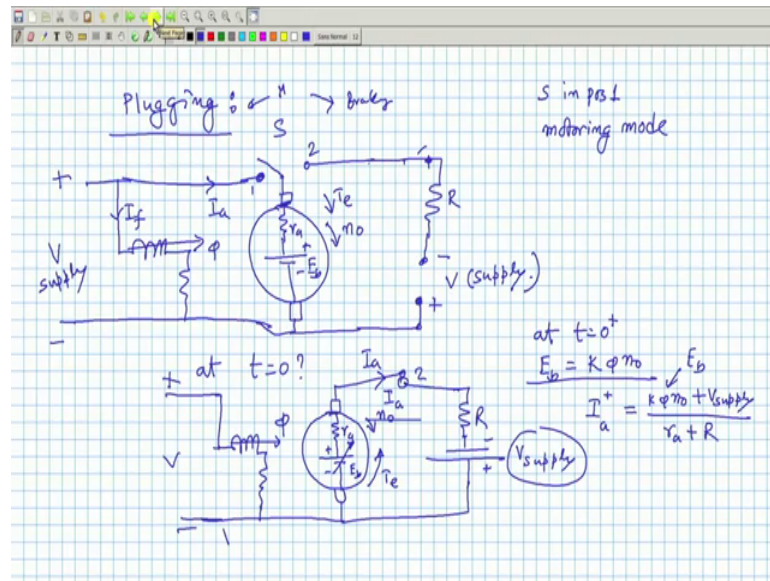 Next Page
Sans Normal 12
Plugging :
S in pos 1
motoring mode
S
2
+
1
I_f
I_a
T_e
n_0
R
r_a
+
φ
V
supply
- E_b
-
V (supply.)
+
-
at t=0?
at t=0⁺
E_b = K φ n_0
E_b
I_a⁺ = (K φ n_0 + V_supply) / (r_a + R)
+
I_a
2
I_a
n_0
R
φ
r_a
V
+
- E_b
T_e
-
+
V_supply
-